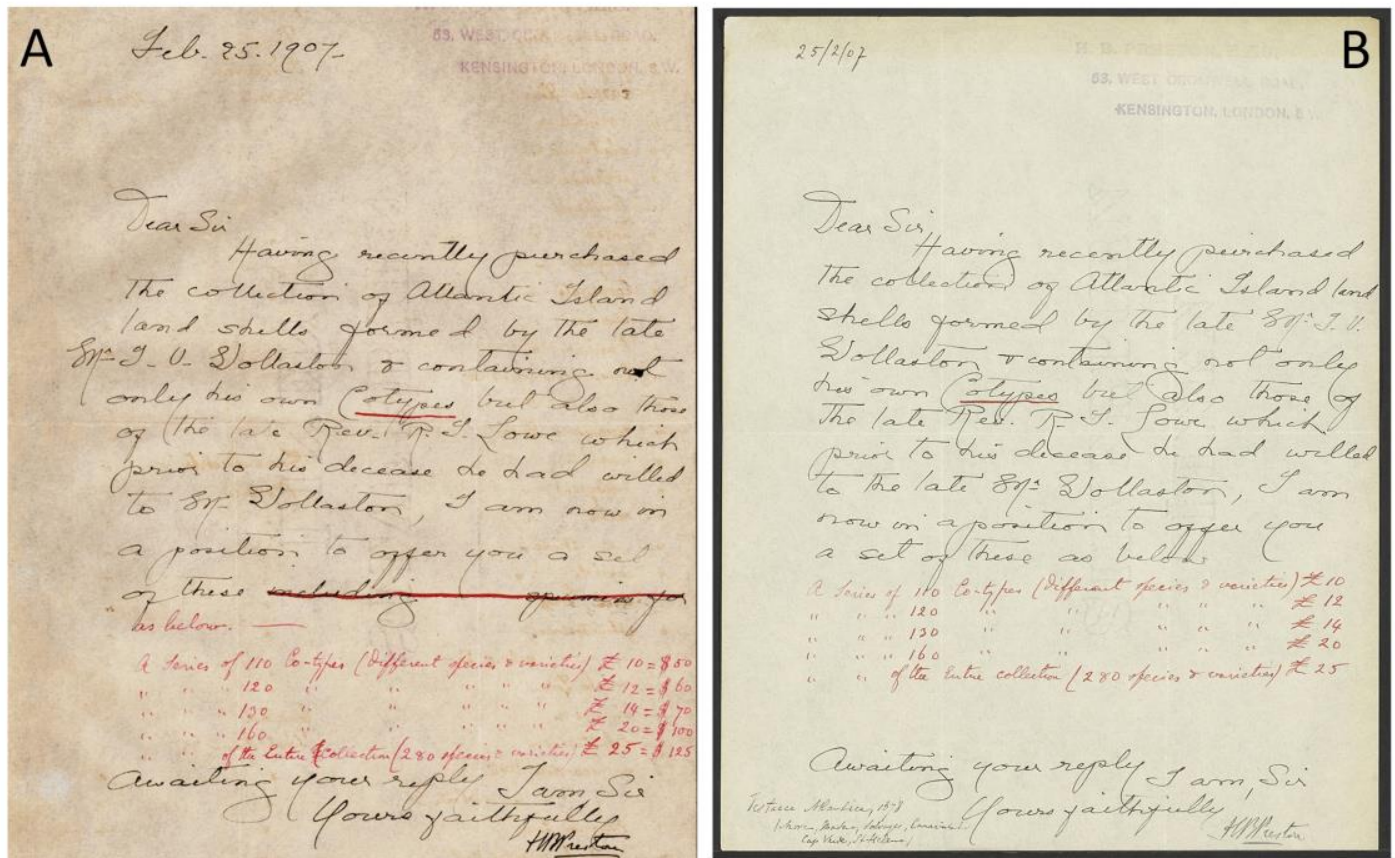 A
Feb. 25. 1907
53, WEST CROMWELL ROAD,
KENSINGTON, LONDON, S.W.
Dear Sir
Having recently purchased
the collection of Atlantic Island
land shells formed by the late
Mr. T. V. Wollaston & containing not
only his own Cotypes but also those
of the late Rev. R. T. Lowe which
prior to his decease he had willed
to Mr. Wollaston, I am now in
a position to offer you a set
of these including specimens for
as below. —
A Series of 110 Co-types (Different species & varieties) £ 10 = $ 50
" " " 120 " " " " " £ 12 = $ 60
" " " 130 " " " " " £ 14 = $ 70
" " " 160 " " " " " £ 20 = $ 100
" " of the Entire Collection (280 species & varieties) £ 25 = $ 125
Awaiting your reply I am Sir
Yours faithfully
H B Preston
B
25/2/07
H. B. PRESTON,
53, WEST CROMWELL ROAD,
KENSINGTON, LONDON, S.W.
Dear Sir,
Having recently purchased
the collection of Atlantic Island land
shells formed by the late Mr. T. V.
Wollaston & containing not only
his own Cotypes but also those of
the late Rev. R. T. Lowe which
prior to his decease he had willed
to the late Mr. Wollaston, I am
now in a position to offer you
a set of these as below
A Series of 110 Co-types (Different species & varieties) £ 10
" " " 120 " " " " " £ 12
" " " 130 " " " " " £ 14
" " " 160 " " " " " £ 20
" " of the Entire collection (280 species & varieties) £ 25
Awaiting your reply I am, Sir
Yours faithfully
H B Preston
Testacea Atlantica, 1878
Madeira, Salvages, Canaries
Cap Verde, St Helena)